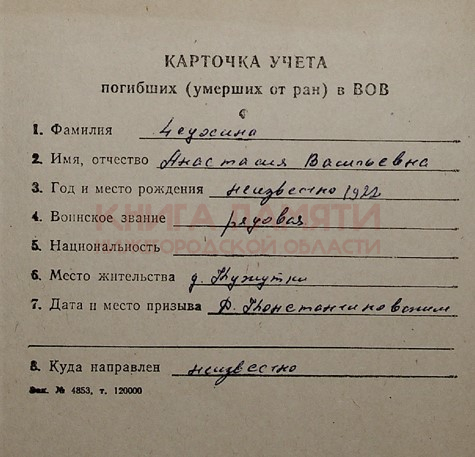 КАРТОЧКА УЧЕТА
погибших (умерших от ран) в ВОВ
1. Фамилия
2. Имя, отчество Анастасия Васильевна
3. Год и место рождения неизвестно 1922
КНИГА ПАМЯТИ
4. Воинское звание рядовая
НИЖЕГОРОДСКОЙ ОБЛАСТИ
5. Национальность
6. Место жительства д.
7. Дата и место призыва Д. Константиновским
8. Куда направлен неизвестно
Зак. № 4853, т. 120000